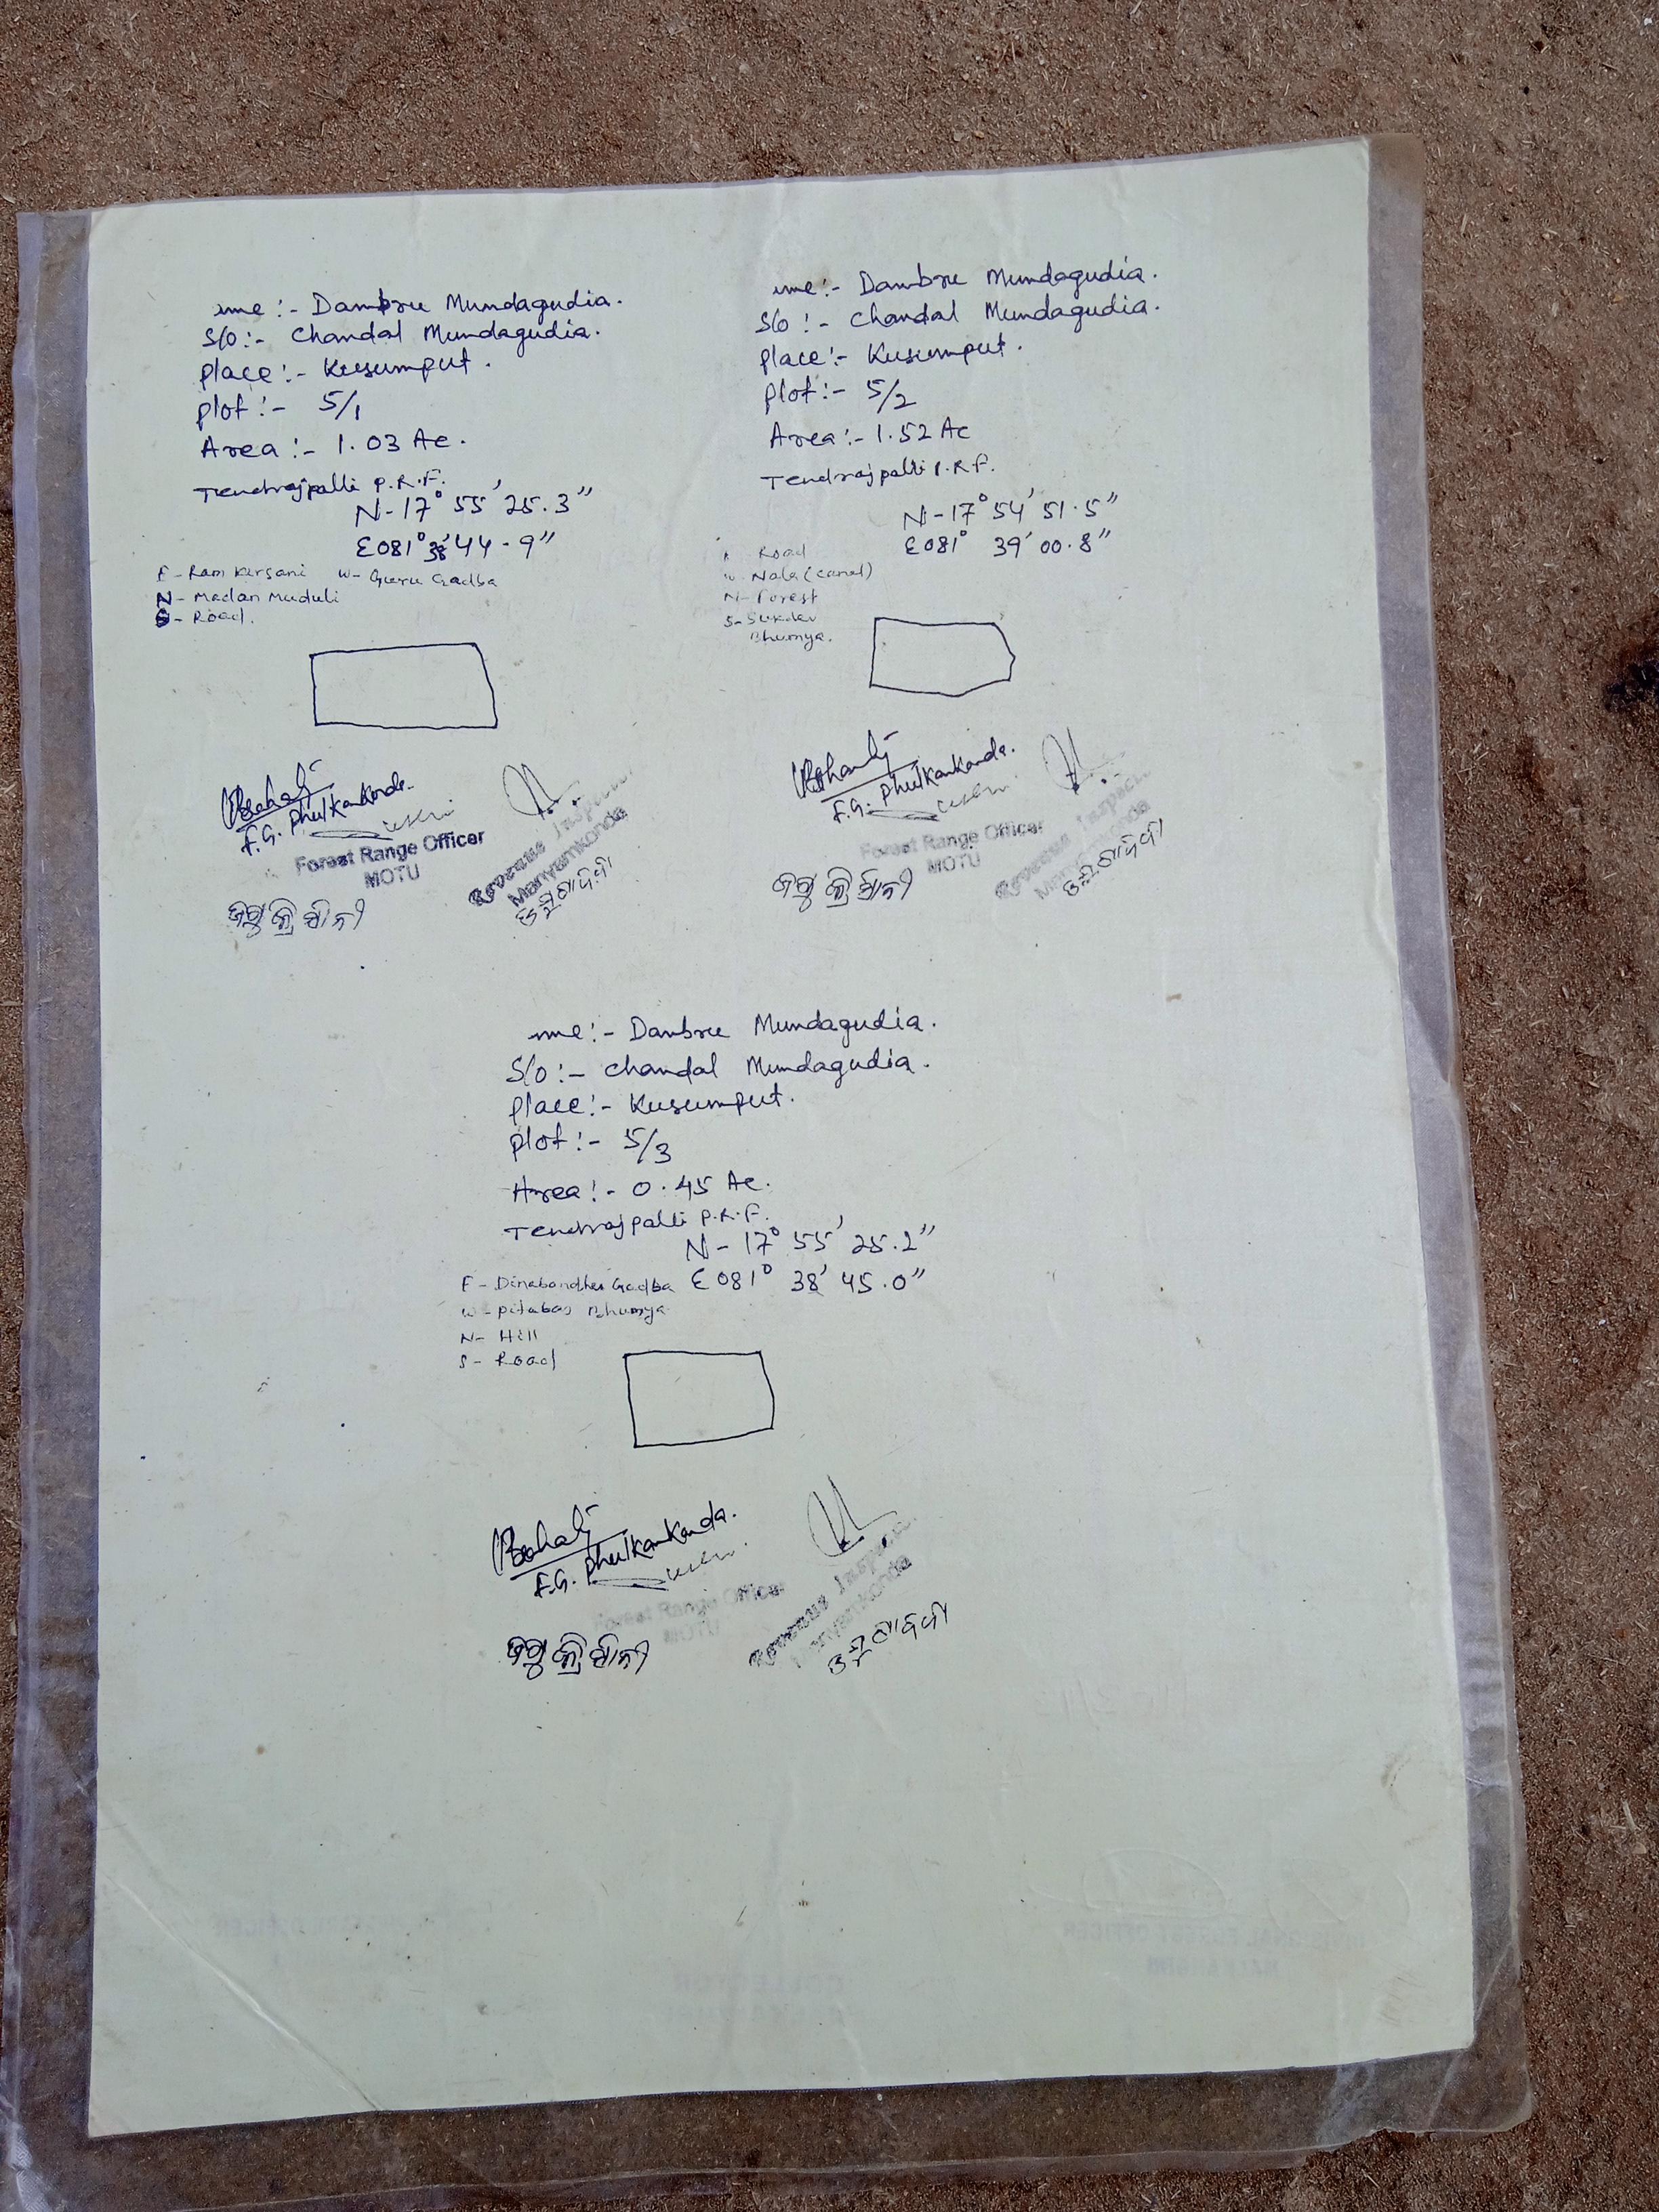 me :- Dambru Mundagudia.
S/o :- Chandal Mundagudia.
place :- Kusumput.
plot :- 5/1
Area :- 1.03 Ac.
Tendrajpalli P.R.F.
N-17° 55' 25.3"
E081° 38' 44.9"
E - Ram Kirsani W - Guru Gadba
N - Madan Muduli
S - Road.
F.G. Phulkankonda.
Forest Range Officer
MOTU
Revenue Inspector
Manyamkonda
me :- Dambru Mundagudia.
S/o :- Chandal Mundagudia.
place :- Kusumput.
plot :- 5/2
Area :- 1.52 Ac
Tendrajpalli P.R.F.
N-17° 54' 51.5"
E081° 39' 00.8"
Road
W - Nala (canal)
N - Forest
S - Sukdev
Bhumya.
F.G. Phulkankonda.
Forest Range Officer
MOTU
Revenue Inspector
Manyamkonda
me :- Dambru Mundagudia.
S/o :- Chandal Mundagudia.
place :- Kusumput.
plot :- 5/3
Area :- 0.45 Ac.
Tendrajpalli P.R.F.
N-17° 55' 25.2"
E081° 38' 45.0"
E - Dinabandhu Gadba
W - Pitabas Bhumya
N - Hill
S - Road
F.G. Phulkankonda.
Forest Range Officer
MOTU
Revenue Inspector
Manyamkonda